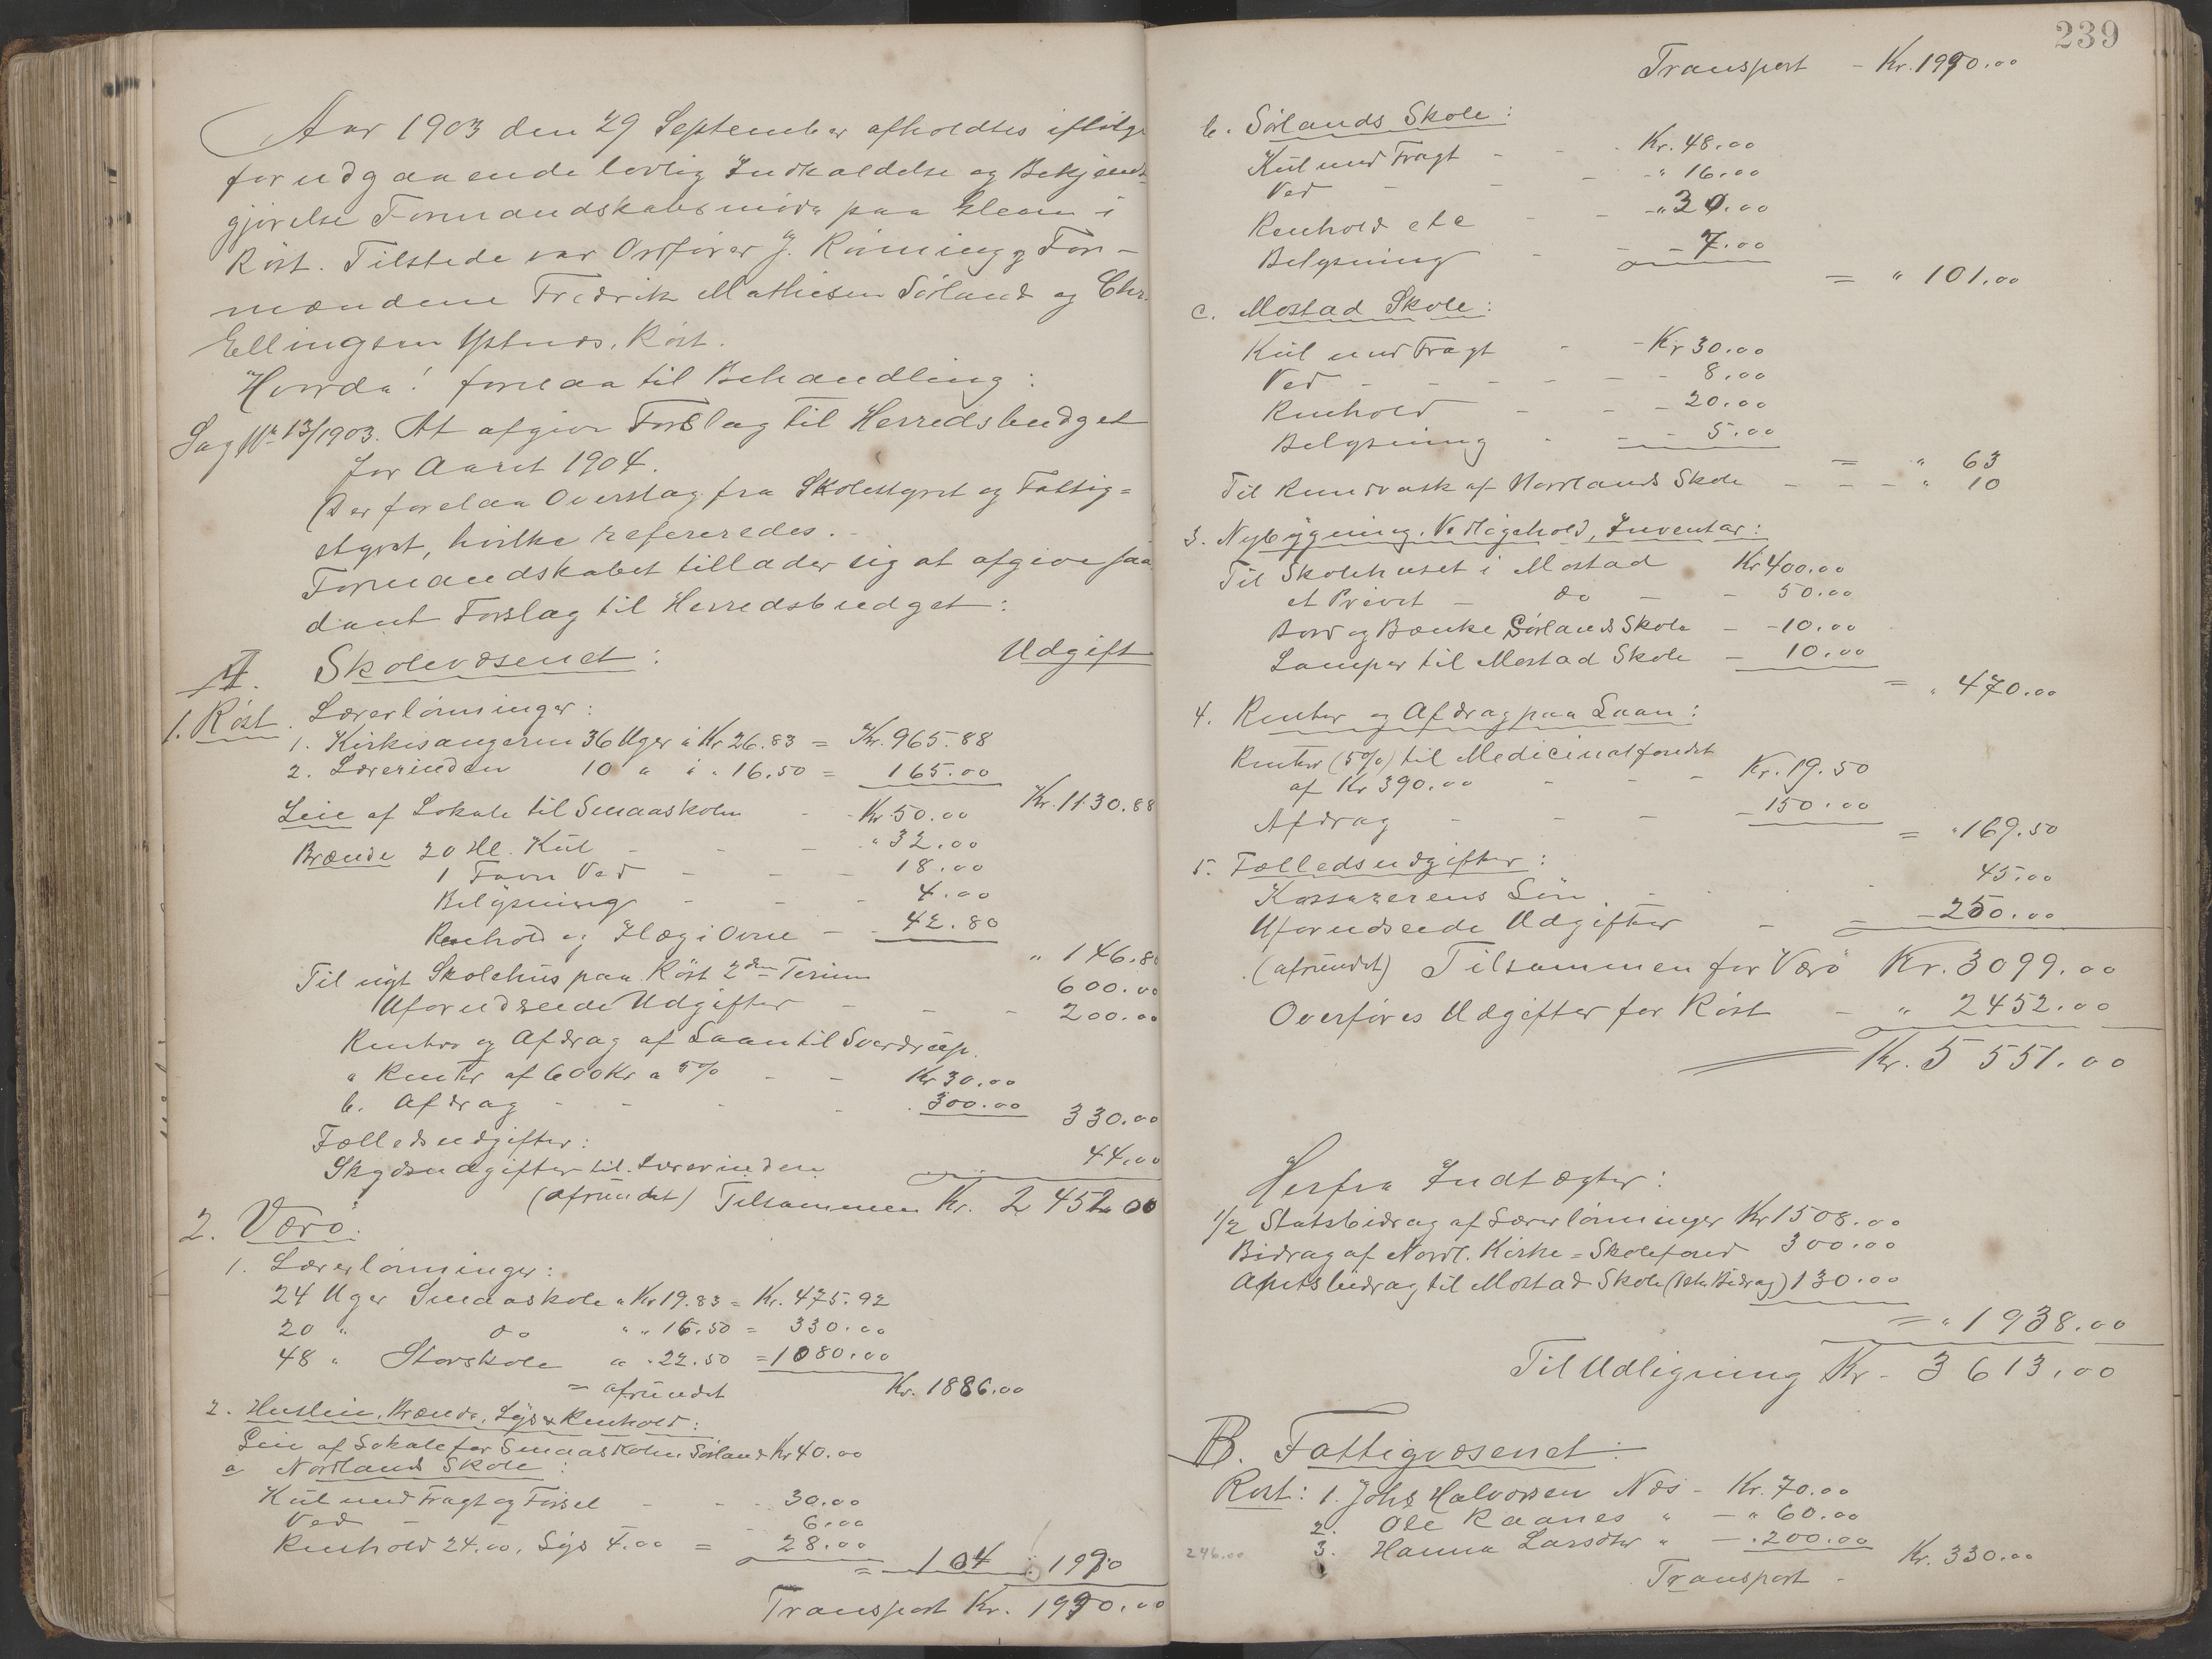 Aar 1903 den 29 September afholdtes ifølge
forudgaaende lovlig Indkaldelse og Bekjendt-
gjørelse Formandskabsmøde paa Glean i
Röst. Tilstede var Ordfører J. Rönning og For-
mændene Fredrik Mathiesen Sörland og Chr.
Ellingsen Ystnæs, Röst.
Hvorda! forelaa til Behandling:
Sag Nr 13/1903. At afgive Forslag til Herredsbudget
for Aaret 1904.
Der forelaa Overslag fra Skolestyret og Fattig=
styret, hvilke refereredes.
Formandskabet tillader sig at afgive saa
dant Forslag til Herredsbudget:
A. Skolevæsenet: Udgift
1. Röst. Lærerlönninger:
1. Kirkesangeren 36 Uger à Kr 26.83 = Kr. 965.88
2. Lærerinden 10 " à " 16.50 = 165.00
Kr. 1130.88
Leie af Lokale til Smaaskolen - - Kr. 50.00
Brænde 20 Hl. Kül - - - " 32.00
1 Favn Ved - - - 18.00
Belysning - - - 4.00
Renhold og Ilæg i Ovne - - 42.80
" 146.80
Til nyt Skolehüs paa Röst 2den Termin 600.00
Uforudseede Udgifter - - - 200.00
Renter og Afdrag af Laan til Sverdrüp.
a Renter af 600 Kr a 5% - - Kr 30.00
b. Afdrag - - - - 300.00 330.00
Fælledsudgifter:
Skydsudgifter til Lærerinden 44.00
(afründet) Tilsammen Kr. 2452.00
2. Værö.
1. Lærerlönninger:
24 Uger Smaaskole a Kr 19.83 = Kr. 475.92
20 " do " " 16.50 = 330.00
48 " Storskole a " 22.50 = 1080.00
= afründet Kr. 1886.00
2. Husleie, Brænde, Lys & Renhold:
Leie af Lokale for Smaaskolen Sörland Kr 40.00
a Nordlands Skole:
Kül med Fragt og Försel - - - 30.00
Ved - - 6.00
Renhold 24.00, Lys 4.00 = 28.00
= 104 : 1990
Transport Kr. 1990.00
239
Transport - Kr. 1990.00
b. Sörlands Skole:
Kül med Fragt - - Kr. 48.00
Ved - - - " 16.00
Renhold etc - - " 30.00
Belysning - - - 7.00
= " 101.00
c. Mostad Skole:
Kül med Fragt - - Kr 30.00
Ved - - - - - - 8.00
Renhold - - - 20.00
Belysning - - - 5.00
= " 63
Til Rundvask af Nordlands Skole - - - " 10
3. Nybygning, Vedligehold, Inventar:
Til Skolehuset i Mostad Kr 400.00
et Privet - do - - 50.00
Bord og Bænke Sörlands Skole - - 10.00
Lamper til Mostad Skole - 10.00
= " 470.00
4. Renter og Afdrag paa Laan:
Renter (5%) til Medicinalfondet
af Kr 390.00 - - - Kr. 19.50
Afdrag - - - - 150.00
= " 169.50
5. Fælledsudgifter:
Kassererens Lön - - - 45.00
Uforudseede Udgifter - - - 250.00
(afründet) Tilsammen for Værö Kr. 3099.00
Overföres Udgifter for Röst - " 2452.00
Kr. 5551.00
Herfra Indtægter:
1/2 Statsbidrag af Lærerlönninger Kr 1508.00
Bidrag af Nordl. Kirke = Skolefond 300.00
Amtsbidrag til Mostad Skole (1ste Bidrag) 130.00
= " 1938.00
Til Udligning Kr - 3613.00
B. Fattigvæsenet:
Röst: 1. Johs Halvorsen Næs - Kr. 70.00
2. Ole Raanes " - " 60.00
246.00 3. Hanna Larsdtr " - " 200.00
Kr. 330.00
Transport -